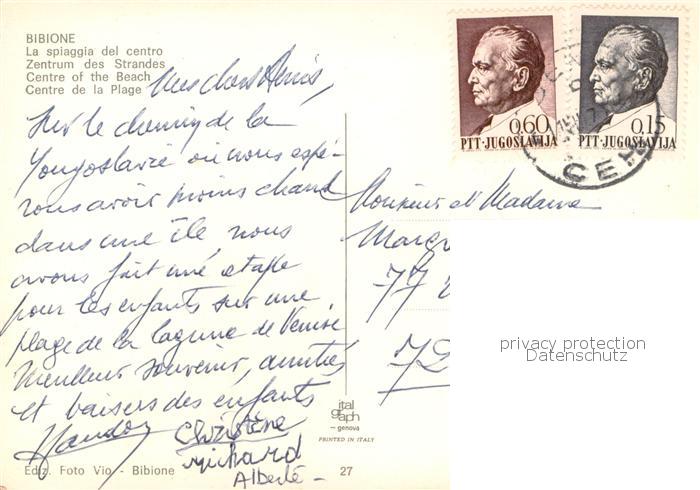 BIBIONE
La spiaggia del centro
Zentrum des Strandes
Centre of the Beach
Centre de la Plage
Mes chers Amis,
Sur le chemin de la
Yougoslavie où nous espé-
rons avoir moins chaud
dans une île, nous
avons fait une etape
pour les enfants sur une
plage de la lagune de Venise
Meilleur souvenir, amitiés
et baisers des enfants
Christène
Richard
Alberte -
Ediz. Foto Vio - Bibione
27
ital
graph
- genova
PRINTED IN ITALY
0,60
PTT·JUGOSLAVIJA
0,15
PTT·JUGOSLAVIJA
Monsieur et Madame
77
72
privacy protection
Datenschutz